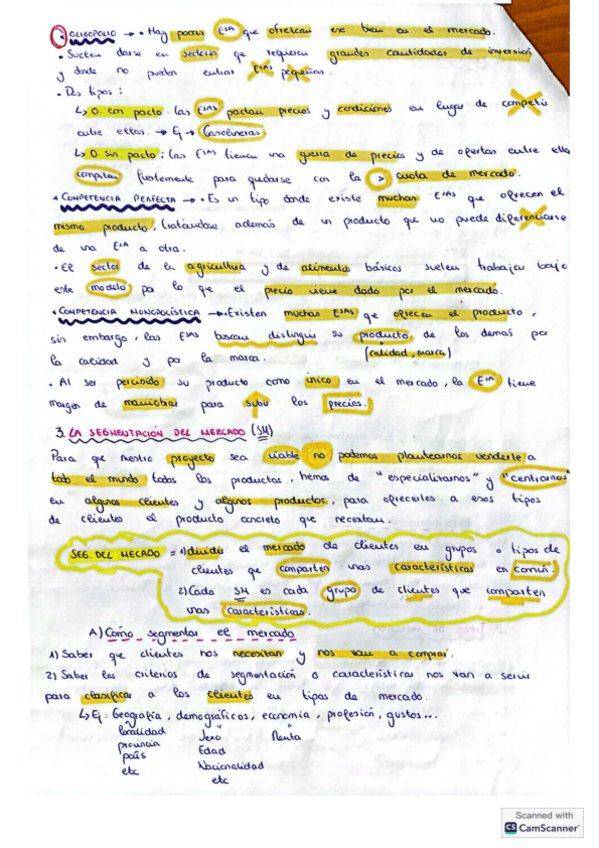 • OLIGOPOLIO → • Hay pocas ESAs que ofrezcan ese bien en el mercado.
• Suelen darse en sectores que requieren grandes cantidades de inversión
y donde no pueden entrar ESAs pequeñas.
• Dos tipos:
↳ O. con pacto: las ESAs pactan precios y condiciones en lugar de competir
entre ellas. → Ej → Gasolineras.
↳ O. sin pacto: las ESAs tienen una guerra de precios y de ofertas entre ella
compiten fuertemente para quedarse con la > cuota de mercado.
• COMPETENCIA PERFECTA → • Es un tipo donde existe muchas ESAs que ofrecen el
mismo producto, tratándose además de un producto que no puede diferenciarse
de una ESA a otra.
• El sector de la agricultura y de alimentos básicos suelen trabajar bajo
este modelo por lo que el precio viene dado por el mercado.
• COMPETENCIA MONOPOLÍSTICA → • Existen muchas ESAs que ofrecen el producto,
sin embargo, las ESAs buscan distinguir su producto de los demás por
la calidad y por la marca. (calidad, marca)
• Al ser percibido su producto como único en el mercado, la ESA tiene
margen de maniobrar para subir los precios.
3. LA SEGMENTACIÓN DEL MERCADO (SM)
Para que nuestro proyecto sea viable no podemos plantearnos venderle a
todo el mundo todos los productos, hemos de "especializarnos" y "centrarnos"
en algunos clientes y algunos productos, para ofrecerles a esos tipos
de clientes el producto concreto que necesitan.
SEG. DEL MECADO = 1) dividir el mercado de clientes en grupos o tipos de
clientes que comparten unas características en común.
2) Cada SM es cada grupo de clientes que comparten
unas características.
A) Cómo segmentar el mercado
1) Saber que clientes nos necesitan y nos van a comprar.
2) Saber los criterios de segmentación o características nos van a servir
para clasificar a los clientes en tipos de mercado.
↳ Ej: Geografía, demográficos, economía, profesión, gustos...
localidad Sexo Renta
provincia Edad
país Nacionalidad
etc etc
Scanned with
CS CamScanner